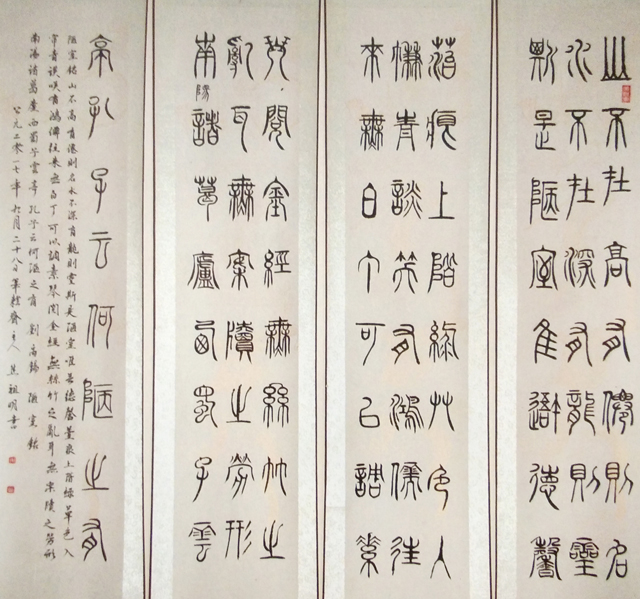 山不在高有僊則名
水不在深有龍則靈
斯是陋室隹吾德馨
菭痕上階綠艸色入
簾青談笑有鴻儒往
來無白丁可以調素
琴閱金經無絲竹之
亂耳無案牘之勞形
南陽諸葛廬西蜀子雲
亭孔子云何陋之有
陋室銘山不高有仙則名水不深有龍則靈斯是陋室惟吾德馨苔痕上階綠草色入
帘青談笑有鴻儒往來無白丁可以調素琴閱金經無絲竹之亂耳無案牘之勞形
南陽諸葛廬西蜀子雲亭孔子云何陋之有 劉禹錫 陋室銘
公元二零一七年九月二十八日 齋主人 祖明書